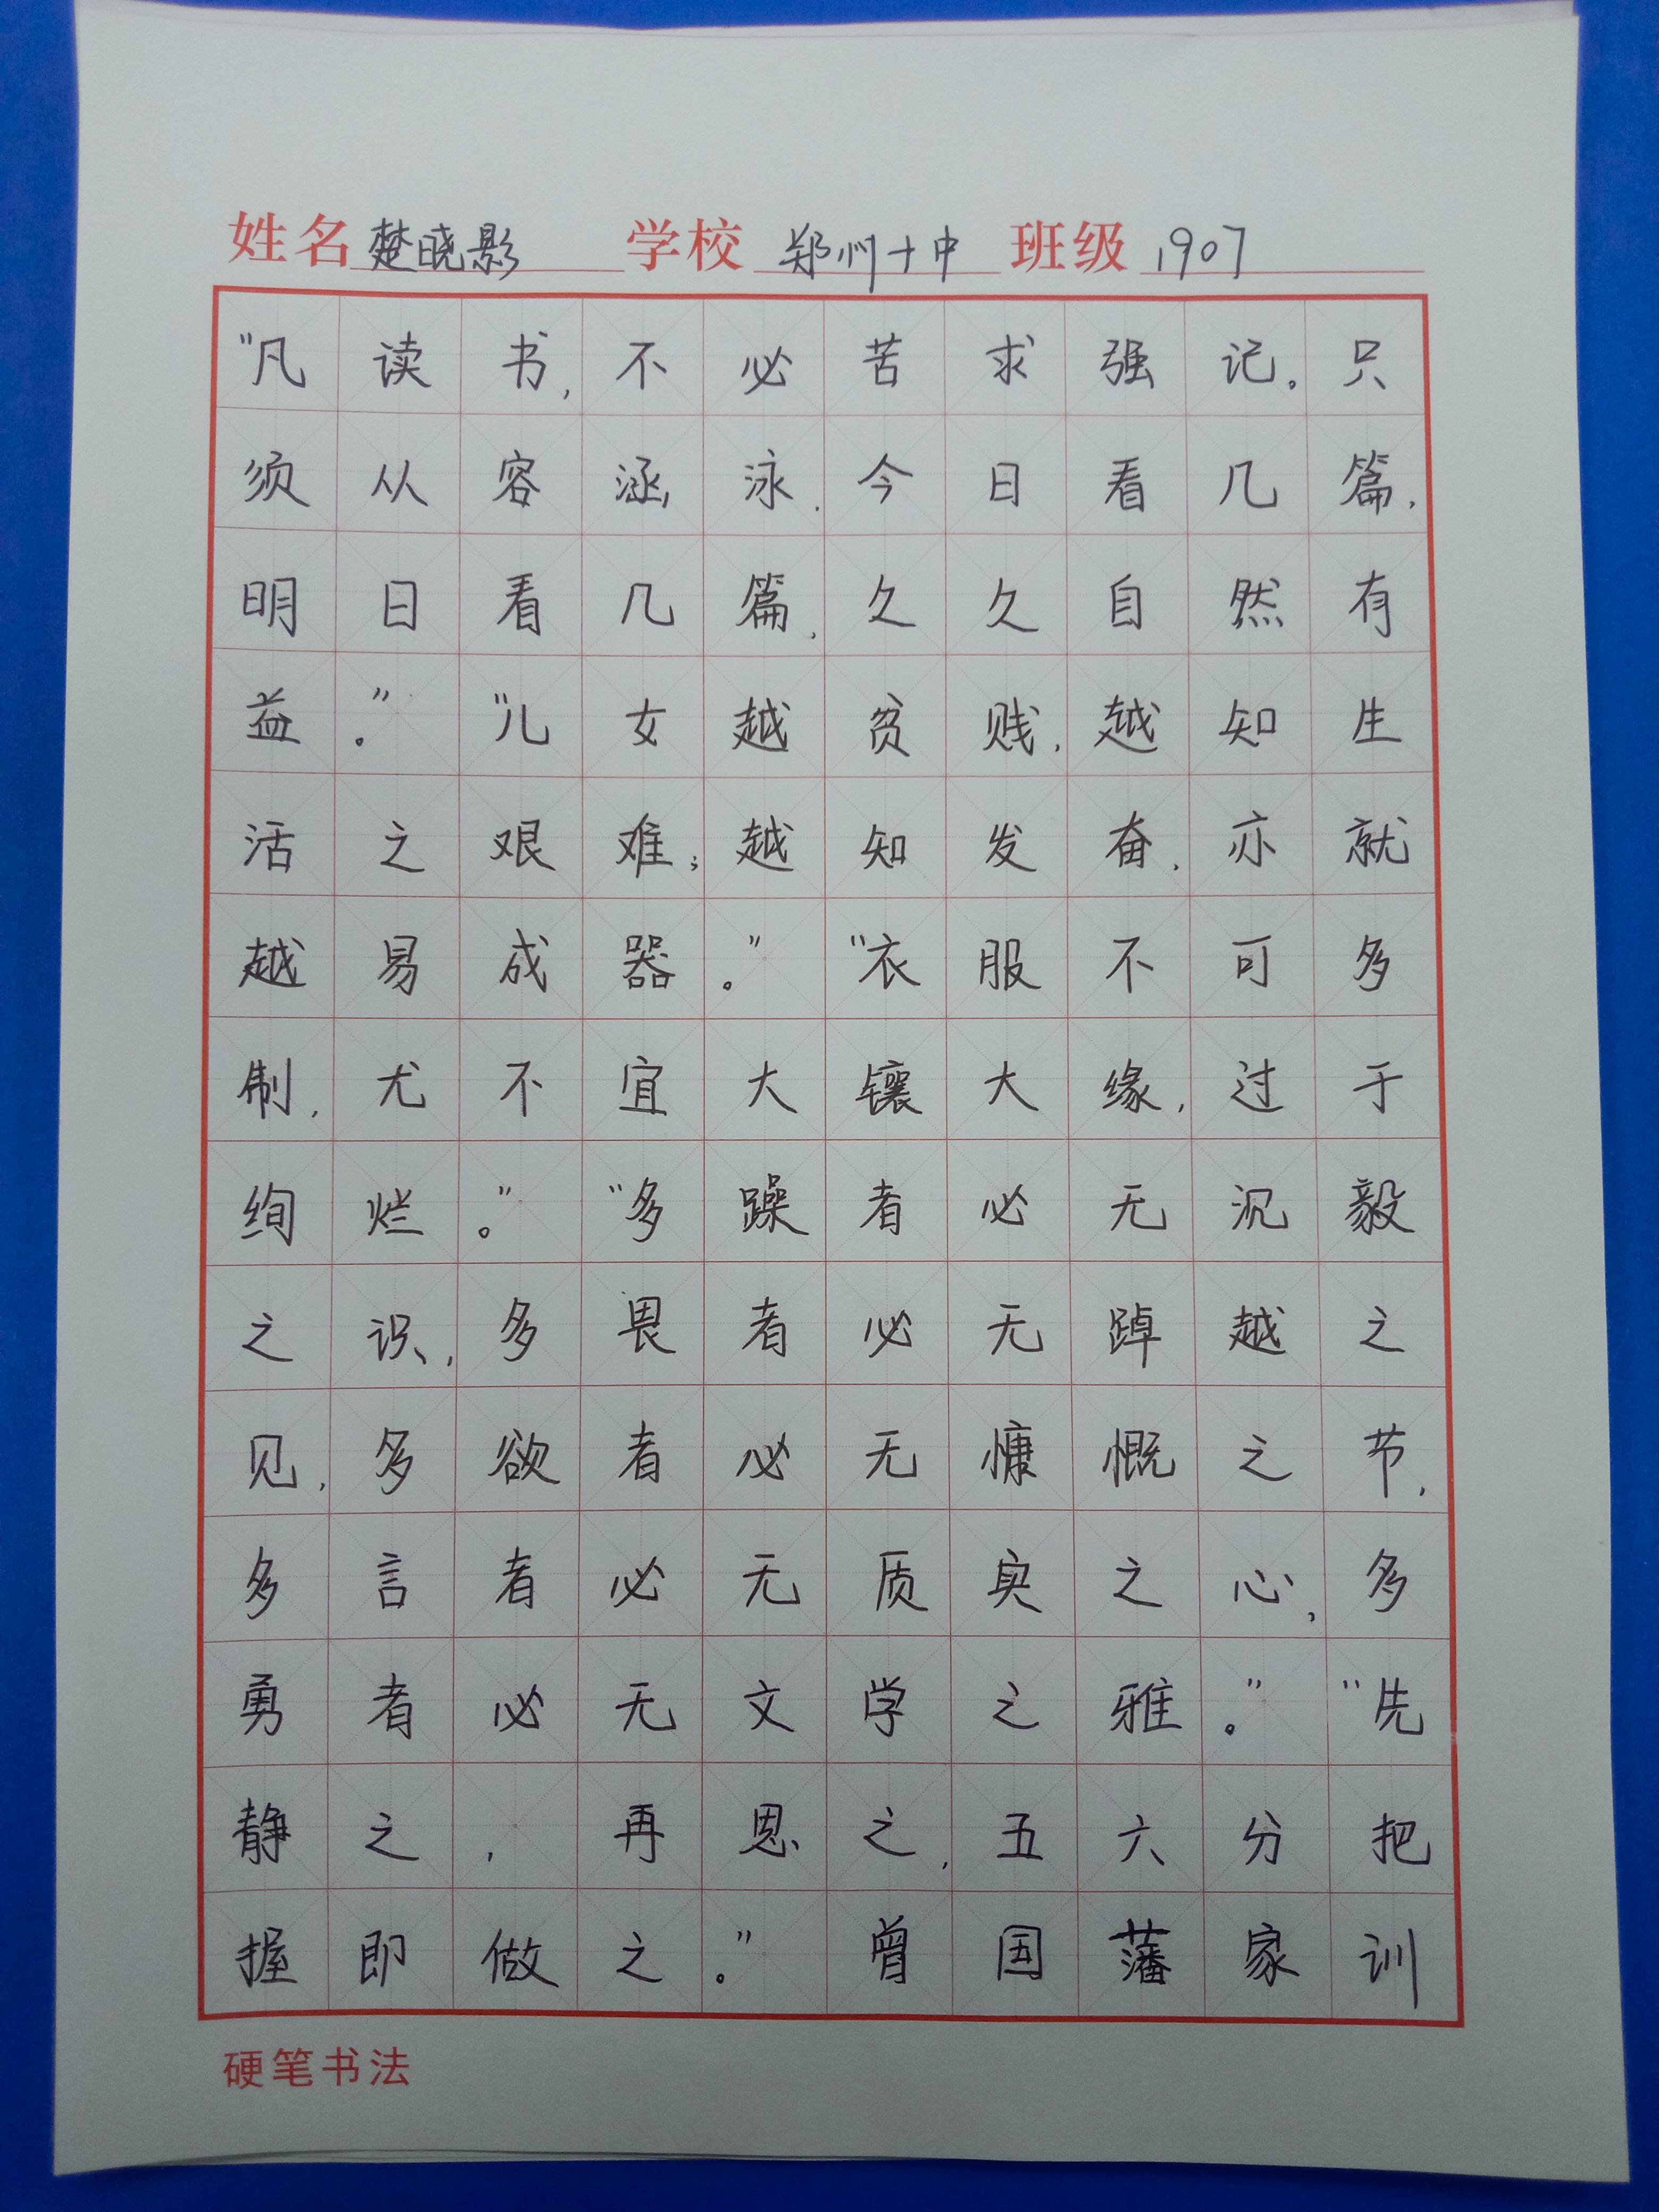 姓名 楚晓影 学校 郑州十中 班级 1907
“凡读书,不必苦求强记。只
须从容涵泳,今日看几篇,
明日看几篇,久久自然有
益。”“儿女越贫贱,越知生
活之艰难;越知发奋,亦就
越易成器。”“衣服不可多
制,尤不宜大镶大缘,过于
绚烂。”“多躁者必无沉毅
之识,多畏者必无踔越之
见,多欲者必无慷慨之节,
多言者必无质实之心,多
勇者必无文学之雅。”“先
静之,再思之,五六分把
握即做之。”曾国藩家训
硬笔书法